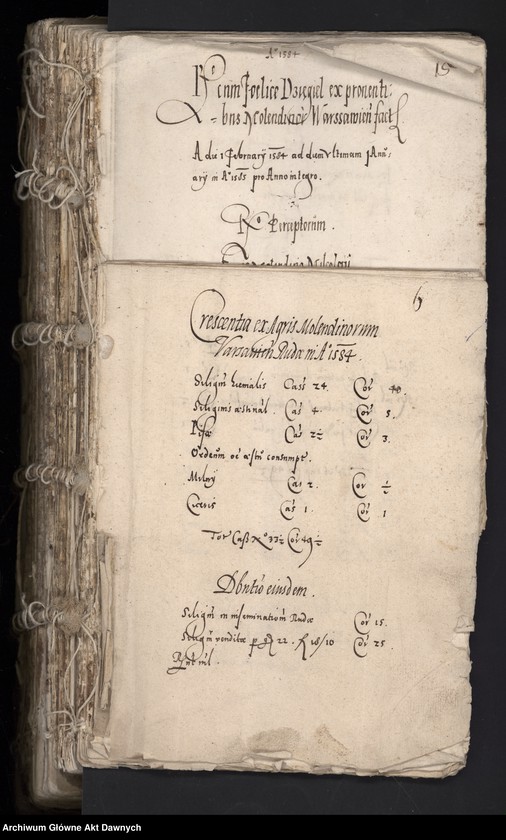 Aº 1584
15
Rº cum Foelice Dzięgiel ex proventi:
bus Molendinor Warssawien fact
A die 1 February 1584 ad diem Ultimam Janu:
ary in Aº 1585 pro Anno integro.
Rº Perceptorum.
6
Crescentia ex Agris Molendinorum
Varsavien Rudae in Aº 1584.
Siliginis hiemalis Cass 24. Cor 40
Siliginis aestival. Cas 4. Cor 5.
Pisae Cas 2½ Cor 3.
Ordeum oe consumpt.
Milij Cas 2. Cor ½
Ciceris Cas 1. Cor 1
Tot Cass Nº 33½ Cor 49½
Dbutio eiusdem.
Siligin in inseminationem Rudae Cor 15.
Siligin venditae p gr 22. fl 18/10 Cor 25.
Rnt nil.
Archiwum Główne Akt Dawnych